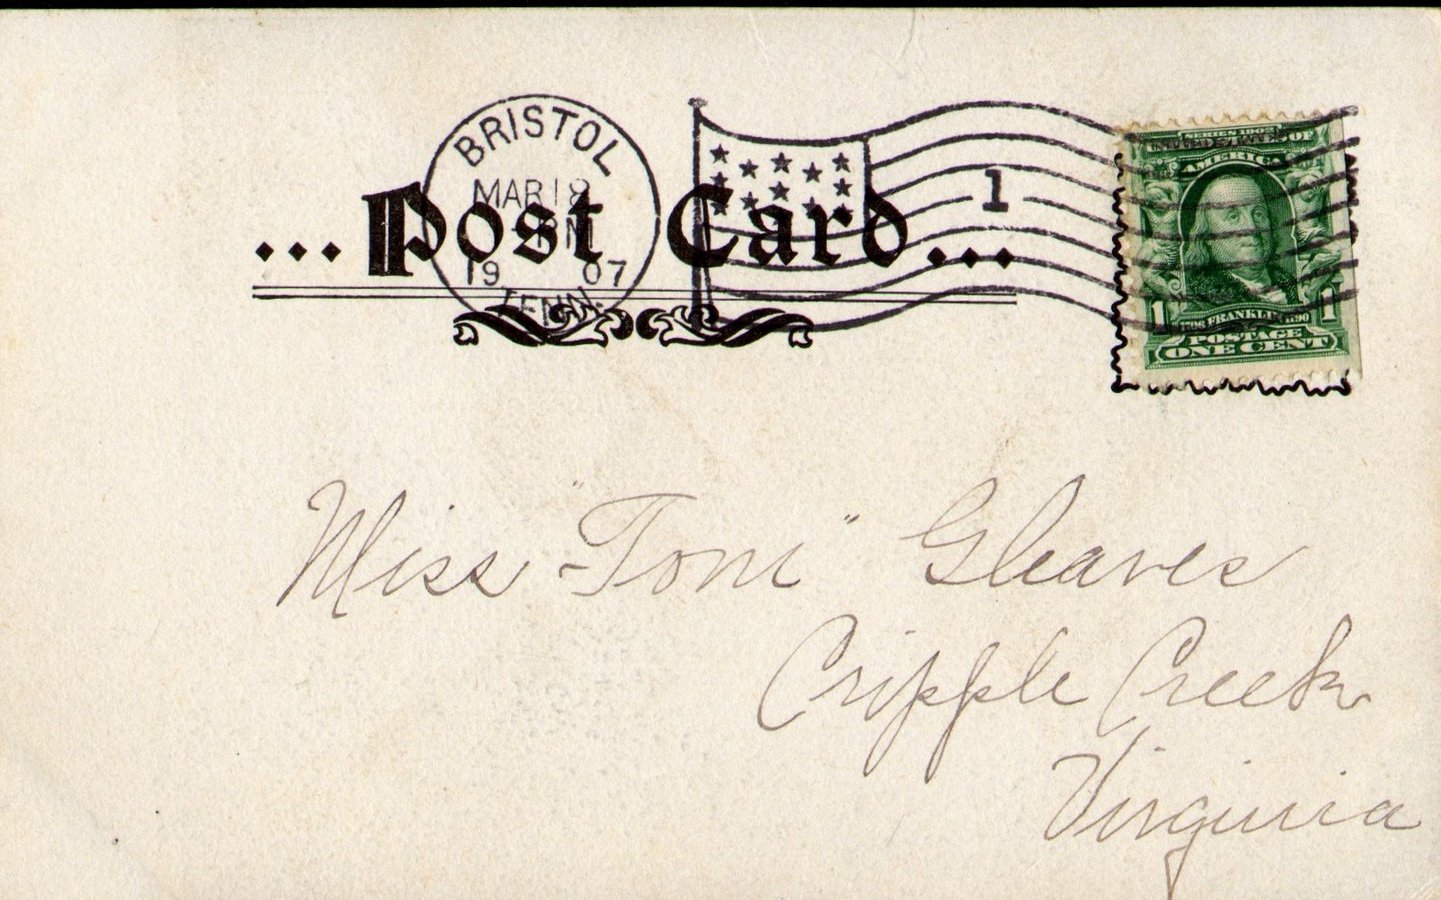 BRISTOL
MAR 18
19 07
TENN.
1
...Post Card...
SERIES 1902
UNITED STATES OF
AMERICA
1 1
1706 FRANKLIN 1790
POSTAGE
ONE CENT
Miss "Toni" Gleaves
Cripple Creek
Virginia